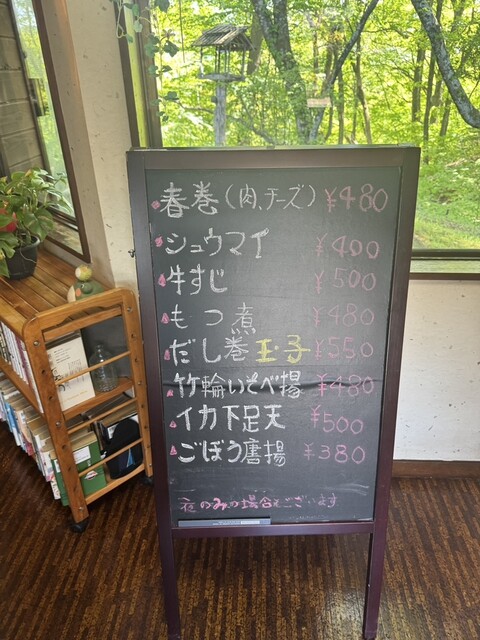 春巻(肉、チーズ) ¥480
シュウマイ ¥400
牛すじ ¥500
もつ煮 ¥480
だし巻玉子 ¥550
竹輪いそべ揚 ¥480
イカ下足天 ¥500
ごぼう唐揚 ¥380
夜のみの場合もございます